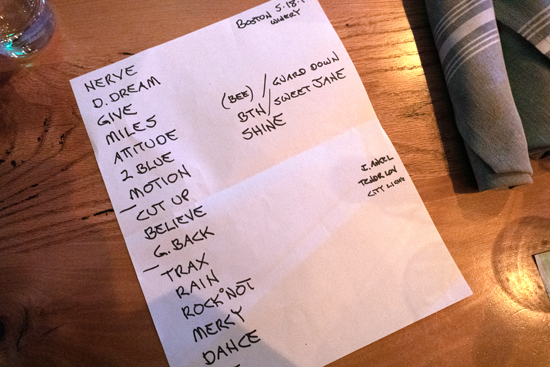 BOSTON 5.18.
WINERY
NERVE
D. DREAM
GIVE
MILES
ATTITUDE
2 BLUE
MOTION
— CUT UP
BELIEVE
G. BACK
— TRAX
RAIN
ROCK NOT
MERCY
DANCE
(BEE) / GUARD DOWN
BTN / SWEET JANE
SHINE
J. ANGEL
TENDR LOV
CITY LIGHT